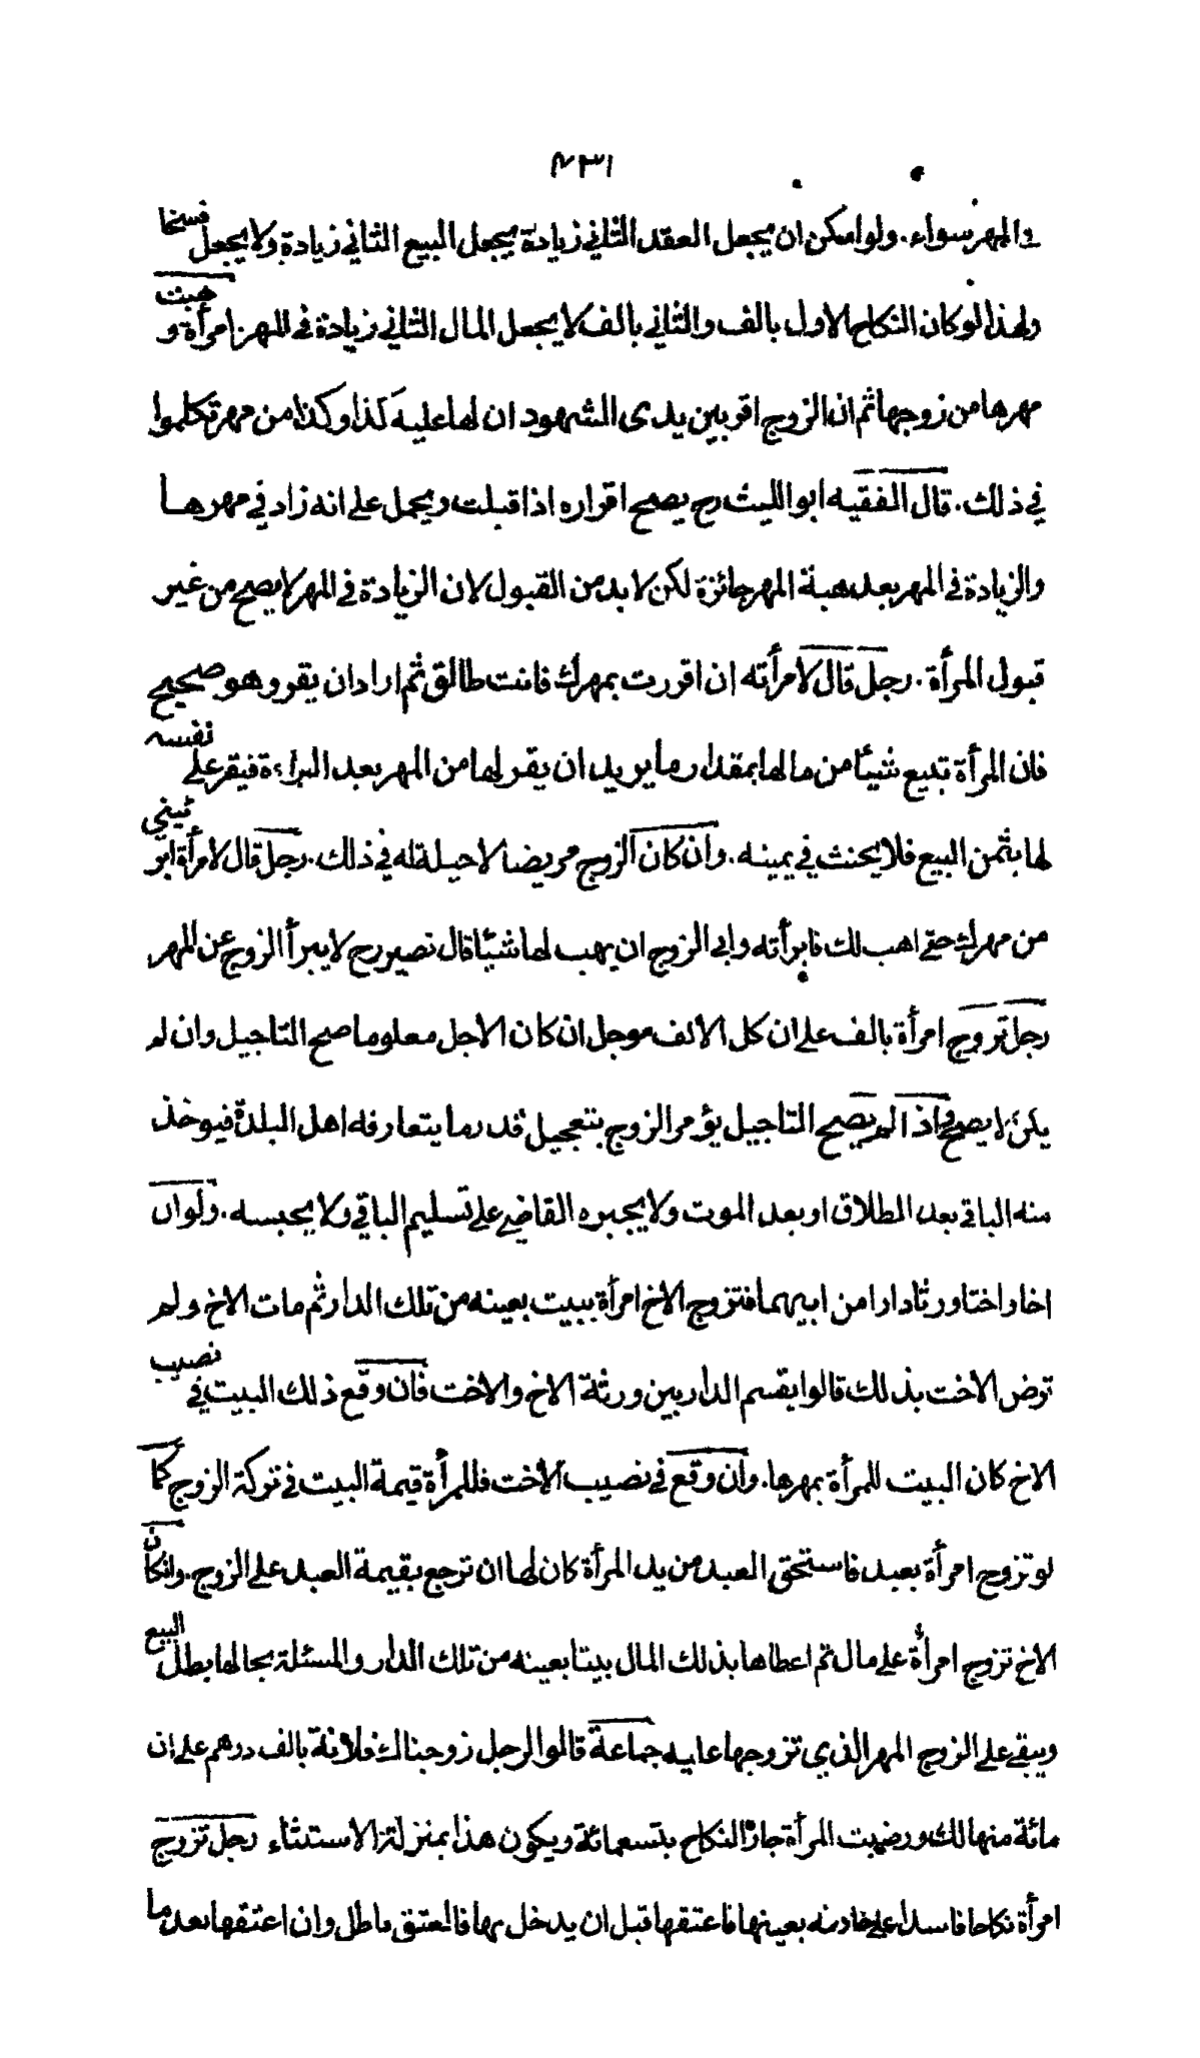 ٤٣١
في المهر سواء . ولو امكن ان يجعل العقد الثاني زيادة يجعل البيع الثاني زيادة ولا يجعل فسخا
ولهذا لو كان النكاح الاول بالف والثاني بالف لا يجعل المال الثاني زيادة في المهر امرأة وهبت
مهرها من زوجها ثم ان الزوج اقر بين يدى الشهود ان لها عليه كذا وكذا من مهر تكلموا
في ذلك . قال الفقيه ابو الليث رح يصح اقراره اذا قبلت ويحمل على انه زاد في مهرها
والزيادة في المهر بعد هبة المهر جائزة لكن لا بد من القبول لان الزيادة في المهر لا يصح من غير
قبول المرأة . رجل قال لامرأته ان اقررت بمهرك فانت طالق ثم اراد ان يقر وهو صحيح
فان المرأة تبيع شيئا من مالها بمقدار ما يريد ان يقر لها من المهر بعد البراءة فيقر على نفسه
لها بثمن البيع فلا يحنث في يمينه . وان كان الزوج مريضا لا حيلة له في ذلك . رجل قال لامرأة ابرئيني
من مهرك حتى اهب لك فابرأته وابى الزوج ان يهب لها شيئا قال نصير رح لا يبرأ الزوج عن المهر
رجل تزوج امرأة بالف على ان كل الالف موجل ان كان الاجل معلوما صح التاجيل وان لم
يكن لا يصح واذا لم يصح التاجيل يؤمر الزوج بتعجيل قدر ما يتعارفه اهل البلدة فيوخذ
منه الباقي بعد الطلاق او بعد الموت ولا يجبره القاضي على تسليم الباقي ولا يحبسه . ولو ان
اخا واختا ورثا دارا من ابيهما فتزوج الاخ امرأة ببيت بعينه من تلك الدار ثم مات الاخ ولم
ترض الاخت بذلك قالوا يقسم الدار بين ورثة الاخ والاخت فان وقع ذلك البيت في نصيب
الاخ كان البيت للمرأة بمهرها . وان وقع في نصيب الاخت فللمرأة قيمة البيت في تركة الزوج كما
لو تزوج امرأة بعبد فاستحق العبد من يد المرأة كان لها ان ترجع بقيمة العبد على الزوج . وان كان
الاخ تزوج امرأة على مال ثم اعطاها بذلك المال بيتا بعينه من تلك الدار والمسئلة بحالها بطل البيع
ويبقى على الزوج المهر الذي تزوجها عليه جماعة قالوا لرجل زوجناك فلانة بالف درهم على ان
مائة منها لك ورضيت المرأة جاز النكاح بتسعمائة ويكون هذا بمنزلة الاستثناء رجل تزوج
امرأة نكاحا فاسدا على خادمه بعينها فاعتقها قبل ان يدخل بها فالعتق باطل وان اعتقها بعد ما